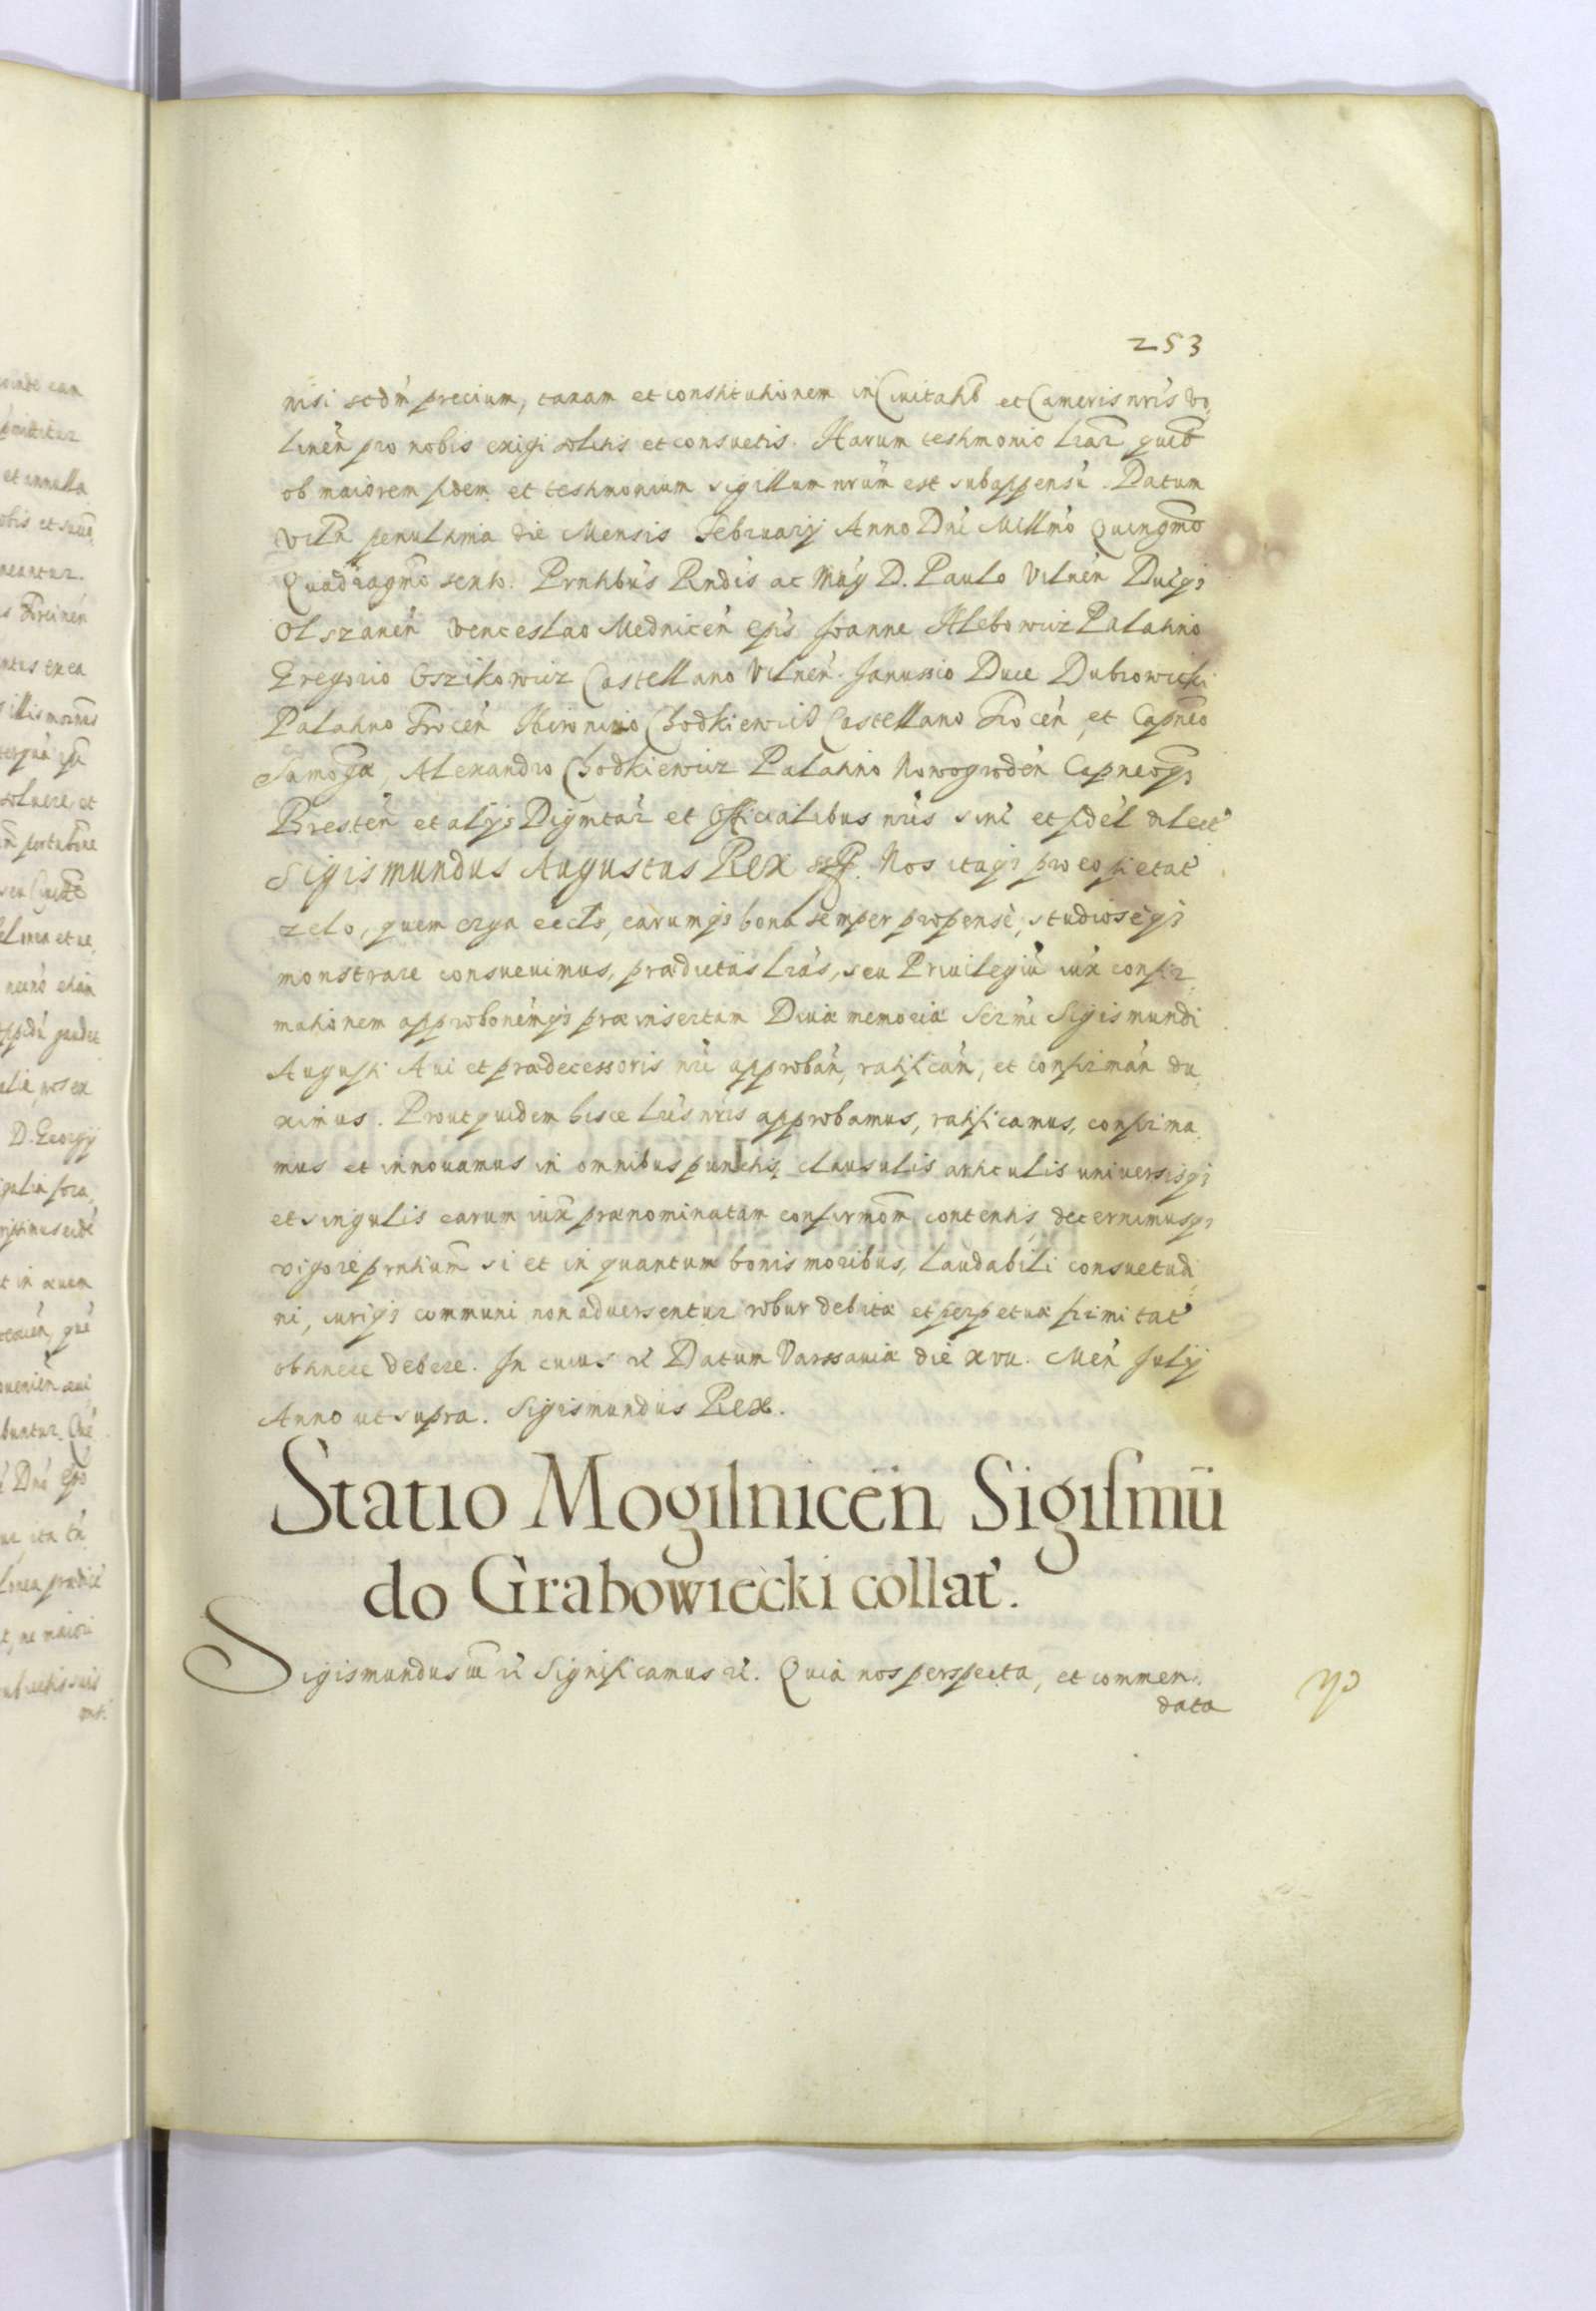 253
nisi scdm precium, taxam et constitutionem in Civitatib et Cameris nris Vo
linen pro nobis exigi solitis et consuetis. Harum testimonio lrar quib
ob maiorem fidem et testimonium sigillum nrum est subappensu. Datum
Viln penultima die Mensis Februarij Anno Dni Millmo Quingmo
Quadragmo sexto. Prntibus Rndis ac Mag D. Paulo Vilnen Duceq
Olszanen Venceslao Mednicen epis Joanne Hlebowicz Palatino
Gregorio Oszikowicz Castellano Vilnen. Janussio Duce Dubrowicki
Palatino Trocen Hieronimo Chodkiewicz Castellano Trocen, et Capneo
Samogæ, Alexandro Chodkiewicz Palatino Nowogroden Capneoq
Bresten et alijs Dignitar et Officialibus nris sinc et fidel dilect
Sigismundus Augustus Rex sspt. Nos itaq pro eo pietat
zelo, quem erga eccls, earumq bona semper propense, studioseq
monstrare consuevimus, prædictas lras, seu Privilegiu iux confir
mationem approbonemq præinsertam Divæ memoriæ Sermi Sigismundi
Augusti Avi et prædecessoris nri approban, ratifican, et confirman du
ximus. Prout quidem hisce lris nris approbamus, ratificamus, confirma
mus et innovamus in omnibus punctis, clausulis articulis universisq
et singulis earum iux prænominatam confirmom contentis, decernimusq
vigore prntium si et in quantum bonis moribus, laudabili consuetudi
ni, iuriq communi non adversentur robur debitæ et perpetuæ firmitat
obtinere debere. In cuius rei Datum Varsaviæ die xvii. Men Julij
Anno ut supra. Sigismundus Rex.
Statio Mogilnicen Sigismu
do Grabowiecki collat.
Sigismundus iii rc Significamus rc. Quia nos perspecta, et commen
data